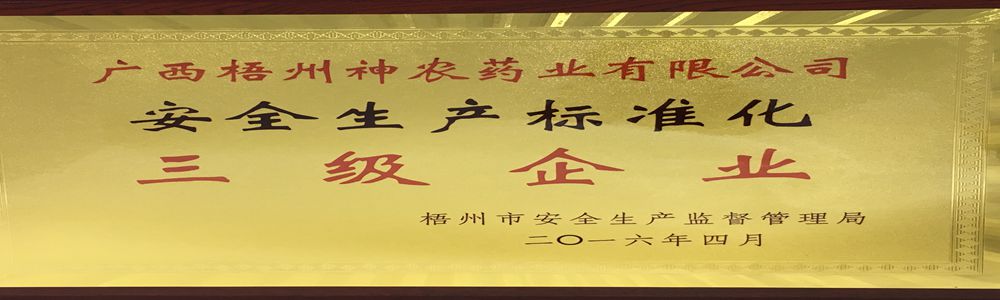 广西梧州神农药业有限公司
安全生产标准化
三级企业
梧州市安全生产监督管理局
二〇一六年四月